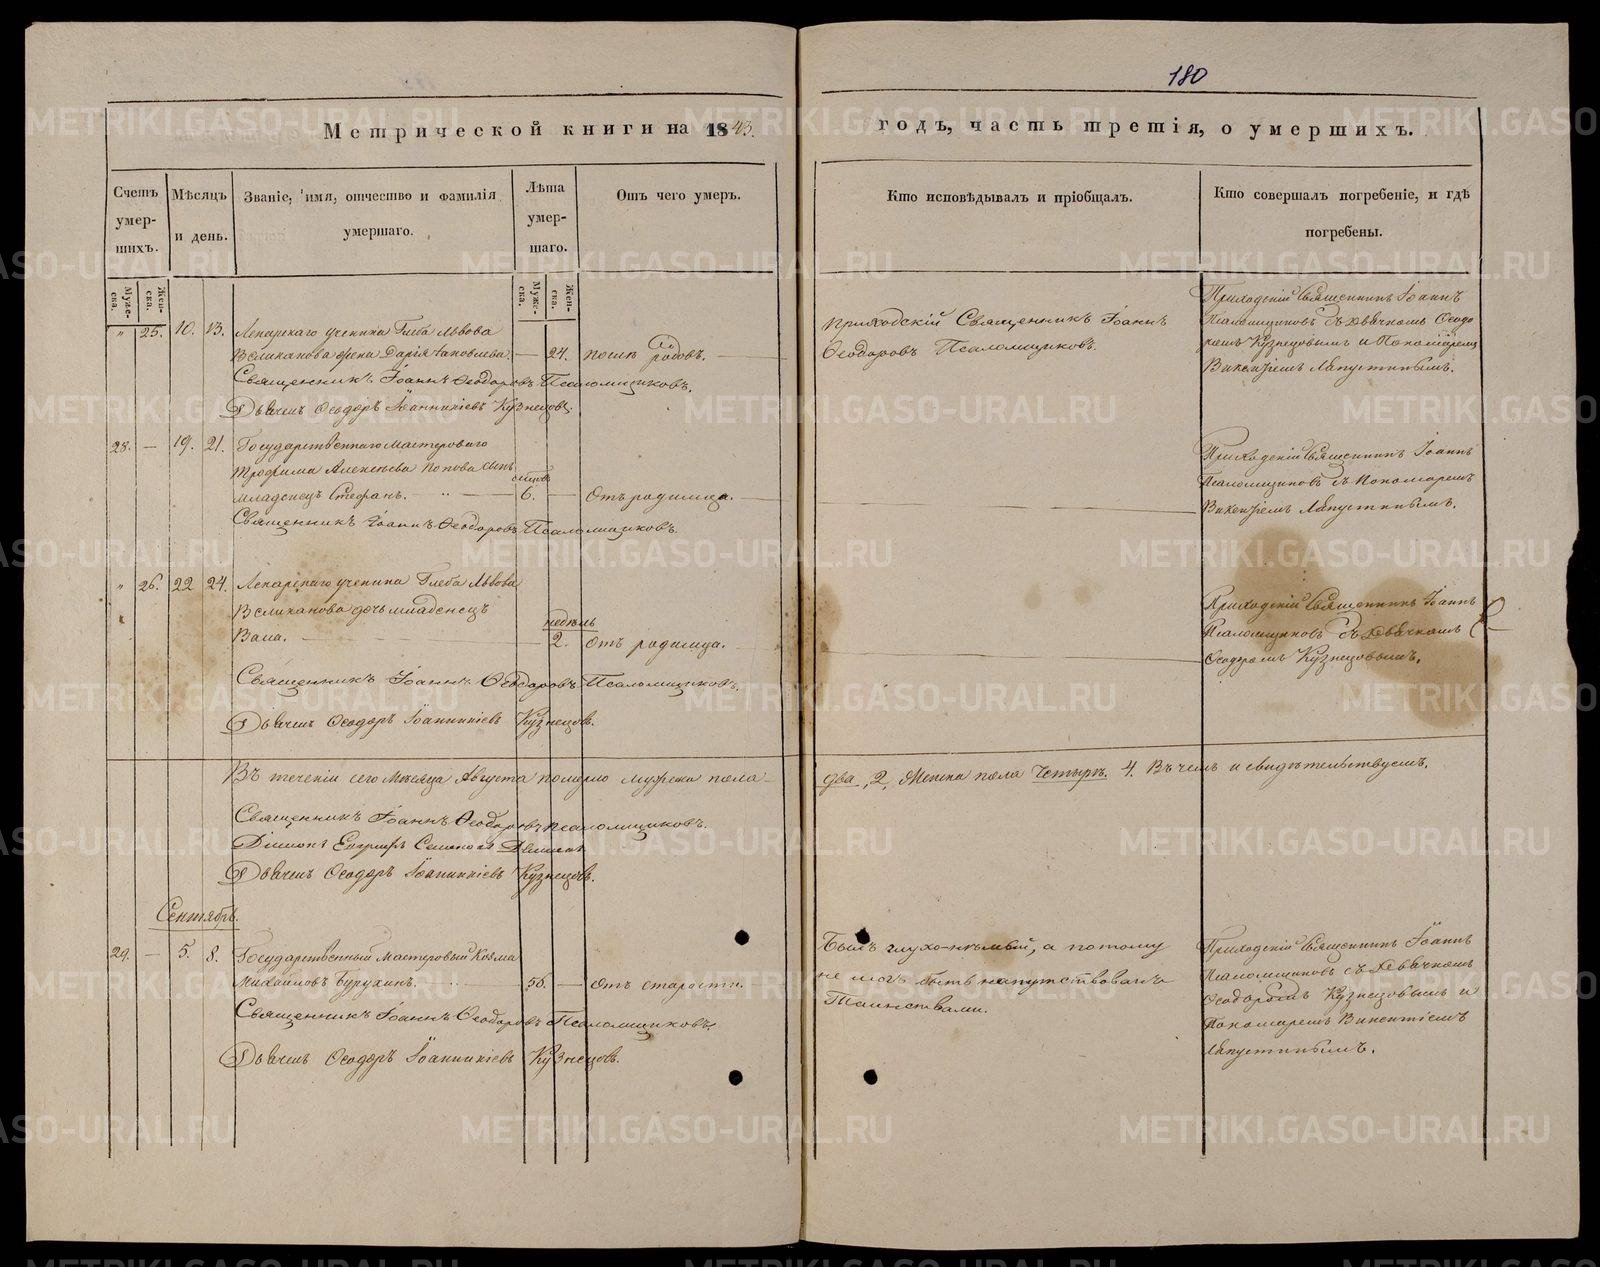 180
Метрической книги на 1843.
годъ, часть третія, о умершихъ.
Счетъ умер-шихъ.
Мѣсяцъ и день.
Званіе, имя, отчество и фамилія умершаго.
Лѣта умер-шаго.
Отъ чего умеръ.
Кто исповѣдывалъ и пріобщалъ.
Кто совершалъ погребеніе, и гдѣ погребены.
Муже-ска.
Жен-ска.
Муже-ска.
Жен-ска.
" 25. 10. 13. Лекарскаго ученика Глеба Львова
Великанова жена Дарія Іаковлева. — 24. после родовъ.
Священникъ Іоаннъ Ѳеодоровъ Псаломщиковъ.
Дьячекъ Ѳеодоръ Іоанникіевъ Кузнецовъ.
Приходскій Священникъ Іоаннъ
Ѳеодоровъ Псаломщиковъ.
Приходскій Священникъ Іоаннъ
Псаломщиковъ съ Дьячкомъ Ѳеодо
ромъ Кузнецовымъ и Пономаремъ
Викентіемъ Лапустинымъ.
28. — 19. 21. Государственнаго Мастероваго
Трофима Алексѣева Попова сынъ
младенецъ Стефанъ. — " — 6. — Отъ родимца.
Священникъ Іоаннъ Ѳеодоровъ Псаломщиковъ.
Приходскій Священникъ Іоаннъ
Псаломщиковъ съ Пономаремъ
Викентіемъ Лапустинымъ.
" 26. 22 24. Лекарскаго ученика Глеба Львова
Великанова дочь младенецъ
недѣль
— 2. Отъ родимца.
Священникъ Іоаннъ Ѳеодоровъ Псаломщиковъ.
Дьячекъ Ѳеодоръ Іоанникіевъ Кузнецовъ.
Приходскій Священникъ Іоаннъ
Псаломщиковъ съ Дьячкомъ
Ѳеодоромъ Кузнецовымъ.
Въ теченіи сего Мѣсяца Августа померло мужеска пола два, 2, Женска пола Четыре. 4. Въ чемъ и свидѣтельствуемъ.
Священникъ Іоаннъ Ѳеодоровъ Псаломщиковъ.
Дьячекъ Ѳеодоръ Іоанникіевъ Кузнецовъ.
Сентябрь.
29. — 5. 8. Государственный Мастеровый Козма
Михайловъ Бурухинъ. 56. — отъ старости.
Священникъ Іоаннъ Ѳеодоровъ Псаломщиковъ.
Дьячекъ Ѳеодоръ Іоанникіевъ Кузнецовъ.
Былъ глухо-нѣмый, а потому
не могъ быть напутствованъ
Таинствами.
Приходскій Священникъ Іоаннъ
Псаломщиковъ съ Дьячкомъ
Ѳеодоромъ Кузнецовымъ и
Пономаремъ Викентіемъ
Лапустинымъ.
METRIKI.GASO-URAL.RU